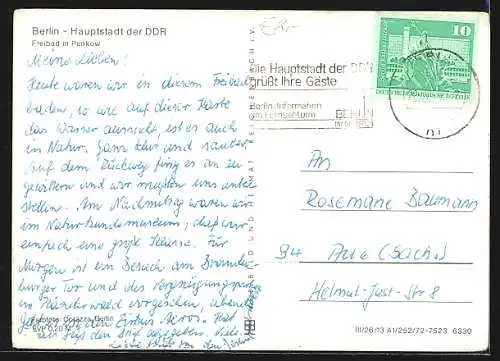 Berlin - Hauptstadt der DDR
Freibad in Pankow
Meine Lieben!
Heute waren wir in diesem Freibad
baden, so wie auf dieser Karte
das Wasser aussieht, ist es auch
in Natur. Ganz klar und sauber.
Auf dem Rückweg fing es an zu
gewittern und wir mußten uns unter-
stellen. Am Nachmittag waren wir
im Naturkundemuseum, das war
einfach eine große Klasse. Für
Morgen ist ein Besuch am Branden-
burger Tor und des Vergnügungsparks
im Plänterwald vorgesehen, abends
den Zirkus Aeros. Hat
den Brief abgegeben. Viele
Liebe Grüße von
Die Hauptstadt der DDR
grüßt Ihre Gäste
Berlin-Information
am Fernsehturm
BERLIN
10
An
Rosemarie Baumann
94 Aue (Sachs)
Helmut-Just-Str 8
Berlin
EVP 0,20 M
BILD UND HEIMAT REICHENBACH I. V.
III/26/13 A1/262/72-7523 6330